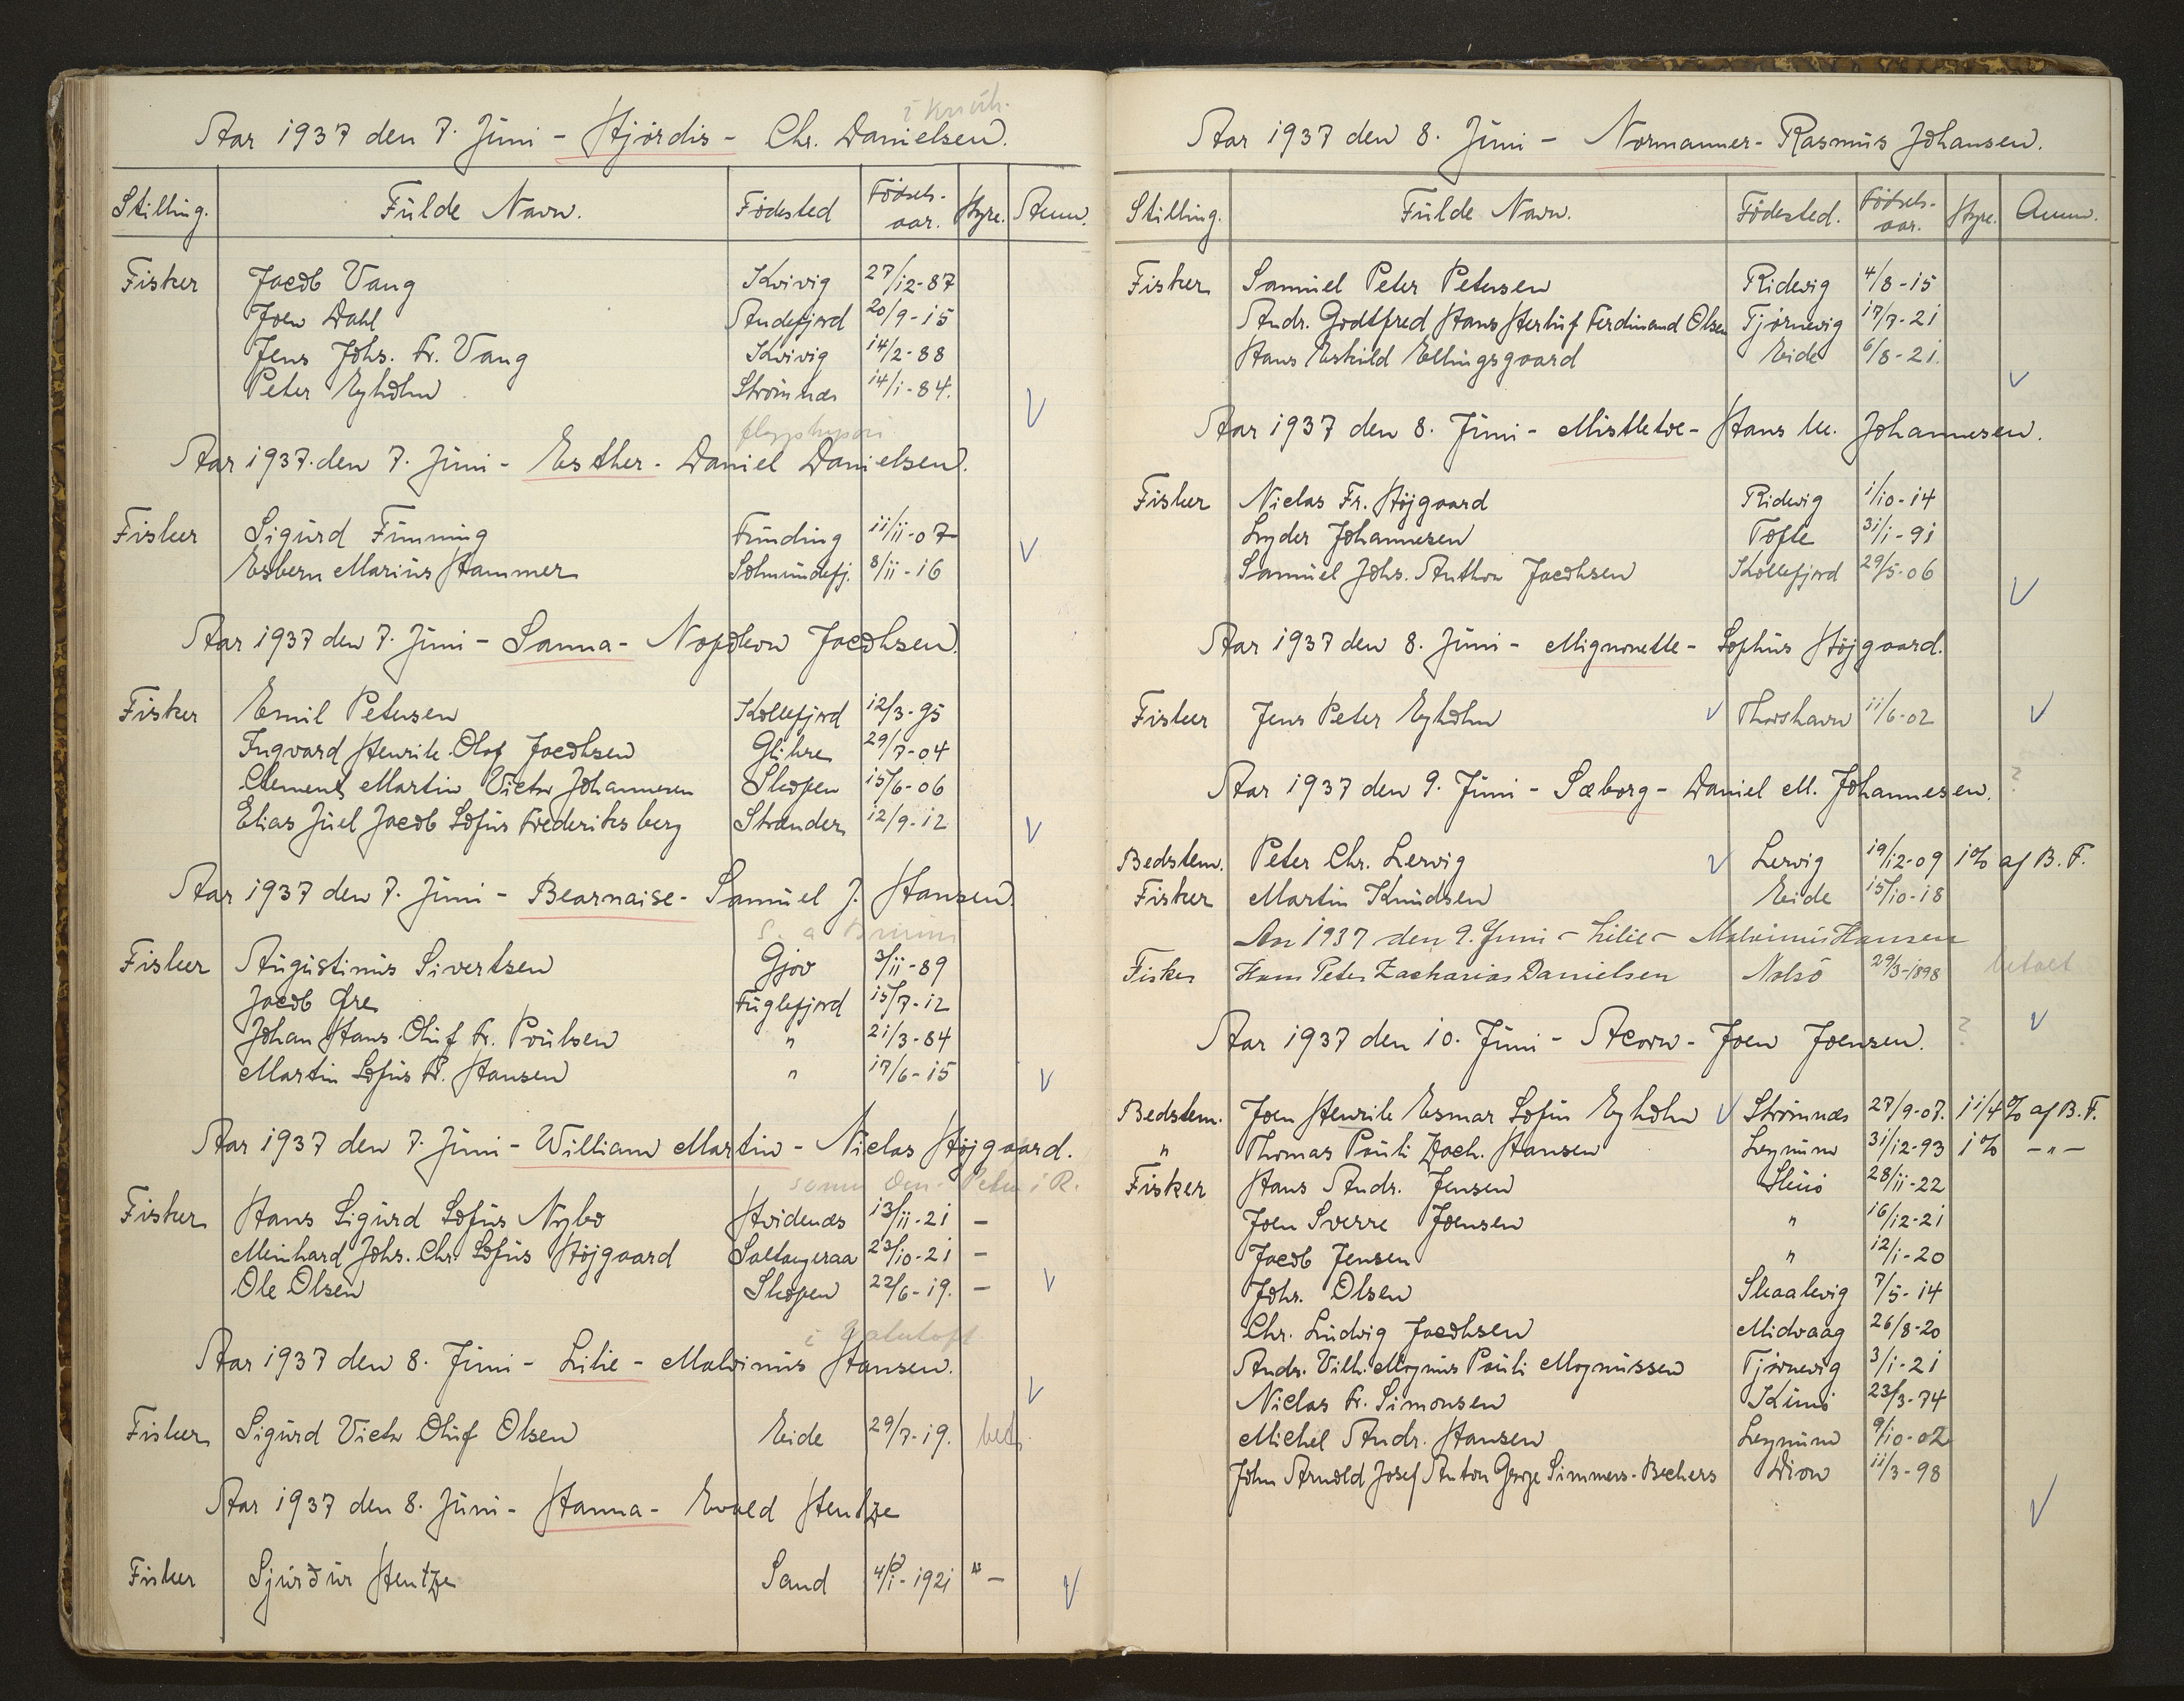 i
Aar 1937 den 7. Juni - Hjördis - Chr. Danielsen.
Stilling. Fulde Navn. Födested Födsels-aar. Hyre. Anm.
Fisker Jacob Vang Kvivig 27/12-87
Joen Dahl Andefjord 20/9-15
Jens Johs. Fr. Vang Kvivig 14/2-88
Peter Eyholm Strömnæs 14/1-84.
Aar 1937. den 7. Juni - Esther - Daniel Danielsen.
Fisker Sigurd Funning Funding 11/11-07
Esbern Marius Hammer Solmundefj. 8/11-16
Aar 1937 den 7. Juni - Sanna - Napoleon Jacobsen.
Fisker Emil Petersen Kollefjord 12/3-95
Ingvard Henrik Olaf Jacobsen Glibre 29/7-04
Clement Martin Victor Johannesen Skopen 15/6-06
Elias Juel Jacob Sofus Frederiksberg Strander 12/9-12
Aar 1937 den 7. Juni - Bearnaise - Samuel J. Hansen.
Fisker Augustinus Sivertsen Gjov 3/11-89
Jacob Øre Fuglefjord 15/7-12
Johan Hans Oluf Fr. Poulsen " 21/3-84
Martin Sofus Fr. Hansen " 17/6-15
Aar 1937 den 7. Juni - William Martin - Niclas Höjgaard.
Fisker Hans Sigurd Sofus Nybo Hvidenæs 13/11-21 -
Meinhard Johs. Chr. Sofus Höjgaard Saltangeraa 23/10-21 -
Ole Olsen Skopen 22/6-19. -
i
Aar 1937 den 8. Juni - Lilie - Malvinus Hansen.
Fisker Sigurd Victor Oluf Olsen Eide 29/7-19. bet.
Aar 1937 den 8. Juni - Hanna - Evald Hentze
Fisker Sjúrður Hentze Sand 4/1-1921 " -
Aar 1937 den 8. Juni - Normanner - Rasmus Johansen.
Stilling. Fulde Navn. Födested. Födsels-aar. Hyre. Anm.
Fisker Samuel Peter Petersen Ridevig 4/8-15
Andr. Godtfred Hans Herluf Ferdinand Olsen Tjörnevig 17/7-21
Hans Eskild Ellingsgaard Eide 6/8-21.
Aar 1937 den 8. Juni - Mistletoe - Hans M. Johannesen.
Fisker Niclas Fr. Höjgaard Ridevig 1/10-14
Lyder Johannesen Tofte 31/1-91
Samuel Johs. Anthon Jacobsen Kollefjord 29/5-06
Aar 1937 den 8. Juni - Mignonette - Sophus Höjgaard.
Fisker Jens Peter Eyholm Thorshavn 11/6-02
Aar 1937 den 9. Juni - Sæborg - Daniel M. Johannesen. ?
Bedstem. Peter Chr. Lervig Lervig 19/12-09 1% af B. F.
Fisker Martin Knudsen Eide 15/10-18
Aar 1937 den 9. Juni - Lilie - Malvinus Hansen
Fisker Hans Peter Zacharias Danielsen Nolsö 29/3-1898 betalt
Aar 1937 den 10. Juni - Acorn - Joen Joensen. ?
Bedstem. Joen Henrik Esmar Sofus Eyholm Strömnæs 27/9-07. 1 1/4% af B. F.
" Thomas Pauli Zach. Hansen Leynum 31/12-93 1% -"-
Fisker Hans Andr. Jensen Skuö 28/11-22
Joen Sverre Joensen " 16/12-21
Jacob Jensen " 12/1-20
Johs. Olsen Skaalevig 7/5-14
Chr. Ludvig Jacobsen Midvaag 26/8-20
Andr. Vilh. Magnus Pauli Magnussen Tjörnevig 3/1-21
Niclas Fr. Simonsen Kunö 23/3-74
Michel Andr. Hansen Leynum 9/10-02
John Arnold Josef Anton George Simmers-Bechers 11/3-98